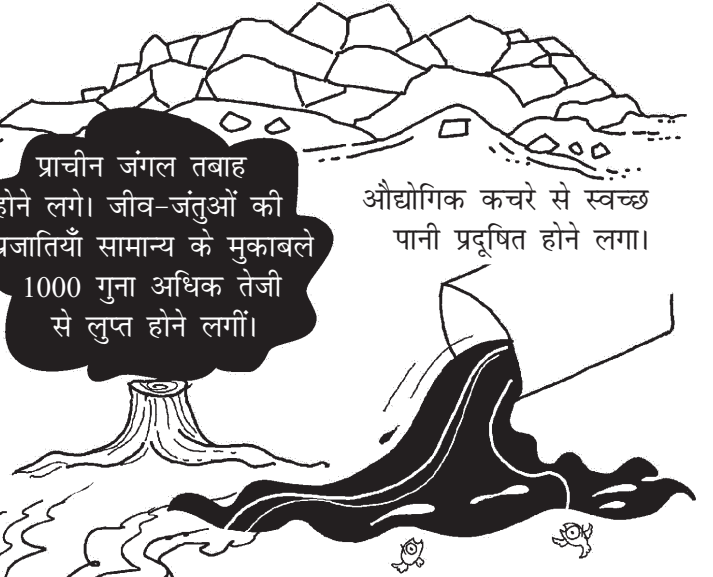 प्राचीन जंगल तबाह
होने लगे। जीव-जंतुओं की
प्रजातियाँ सामान्य के मुकाबले
1000 गुना अधिक तेजी
से लुप्त होने लगीं।
औद्योगिक कचरे से स्वच्छ
पानी प्रदूषित होने लगा।